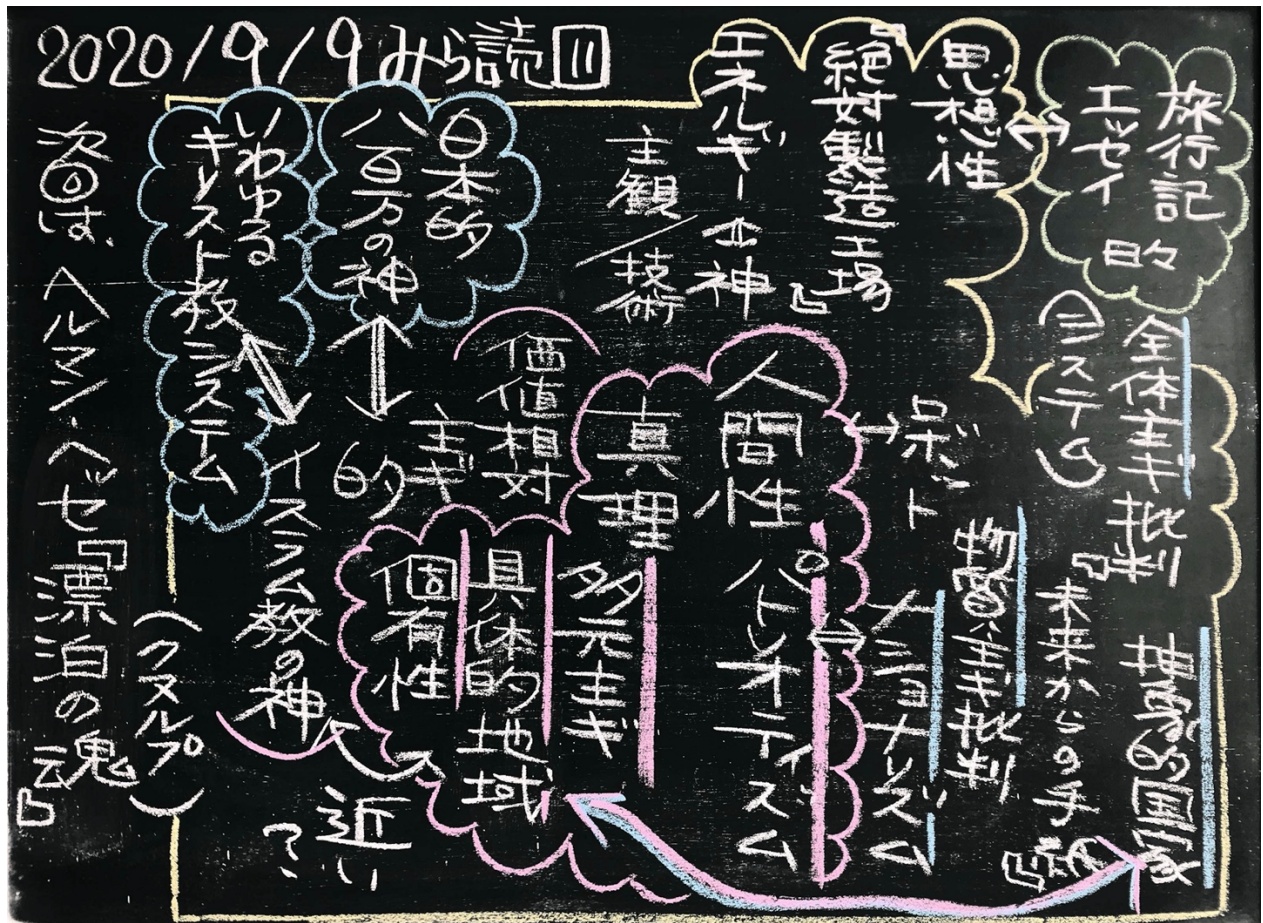 2020/9/9みら読回
旅行記
エッセイ的
思想性
『絶対製造工場』
エネルギー=神
主観/技術
全体主ギ批判
抽象的国家
(システム)
『未来からの手紙』
ロボット
物質主ギ批判
ナショナリズム
人間性
パトリオティズム
真理
多元主ギ
価値相対
主ギ的
具体的地域
個有性
日本的
八百万の神
いわゆる
キリスト教システム
イスラム教の神
近い?
次回は、ヘルマン・ヘッセ『漂泊の魂』
(クヌルプ)